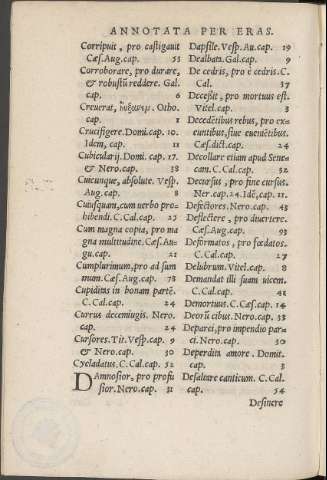 ANNOTATA PER ERAS.
Corripuit, pro castigauit
Cæs. Aug. cap. 53
Corroborare, pro durare,
& robustū reddere. Gal.
cap. 6
Creuerat, Otho.
cap. 1
Crucifigere. Domi. cap. 10.
Idem, cap. 11
Cubicularij. Domi. cap. 17.
& Nero. cap. 38
Cuicunque, absolute. Vesp.
Aug. cap. 8
Cuiusquam, cum uerbo pro-
hibendi. C. Cal. cap. 25
Cum magna copia, pro ma
gna multitudine. Cæs. Au-
gu. cap. 21
Cumplurimum, pro ad sum
mum. Cæs. Aug. cap. 78
Cupiditas in bonam partē.
C. Cal. cap. 24
Currus decemiugis. Nero.
cap. 24
Cursores. Tit. Vesp. cap. 9
& Nero. cap. 30
Cycladatus. C. Cal. cap. 52
DAmnosior, pro profu
sior. Nero. cap. 31
Dapsile. Vesp. Au. cap. 19
Dealbata. Gal. cap. 9
De cedris, pro è cedris. C.
Cal. 37
Decessit, pro mortuus est.
Vitel. cap. 3
Decedētibus rebus, pro ex
euntibus, siue euenētibus.
Cæs. dict. cap. 24
Decollare etiam apud Sene
cam. C. Cal. cap. 32
Decursus, pro fine cursus.
Ner. cap. 24. Idē, cap. 21.
Defectores. Nero. cap. 43
Deflectere, pro diuertere.
Cæs. Aug. cap. 93
Deformatos, pro fœdatos.
C. Cal. cap. 27
Delubrum. Vitel. cap. 8
Demandat illi suam uicem.
C. Cal. cap. 41
Demortuus. C. Cæs. cap. 14
Deorū cibus. Nero. cap. 33
Deparci, pro impendio par-
ci. Nero. cap. 30
Deperdita amore. Domit.
cap. 3
Desaltare canticum. C. Cal.
cap. 54
Desinere